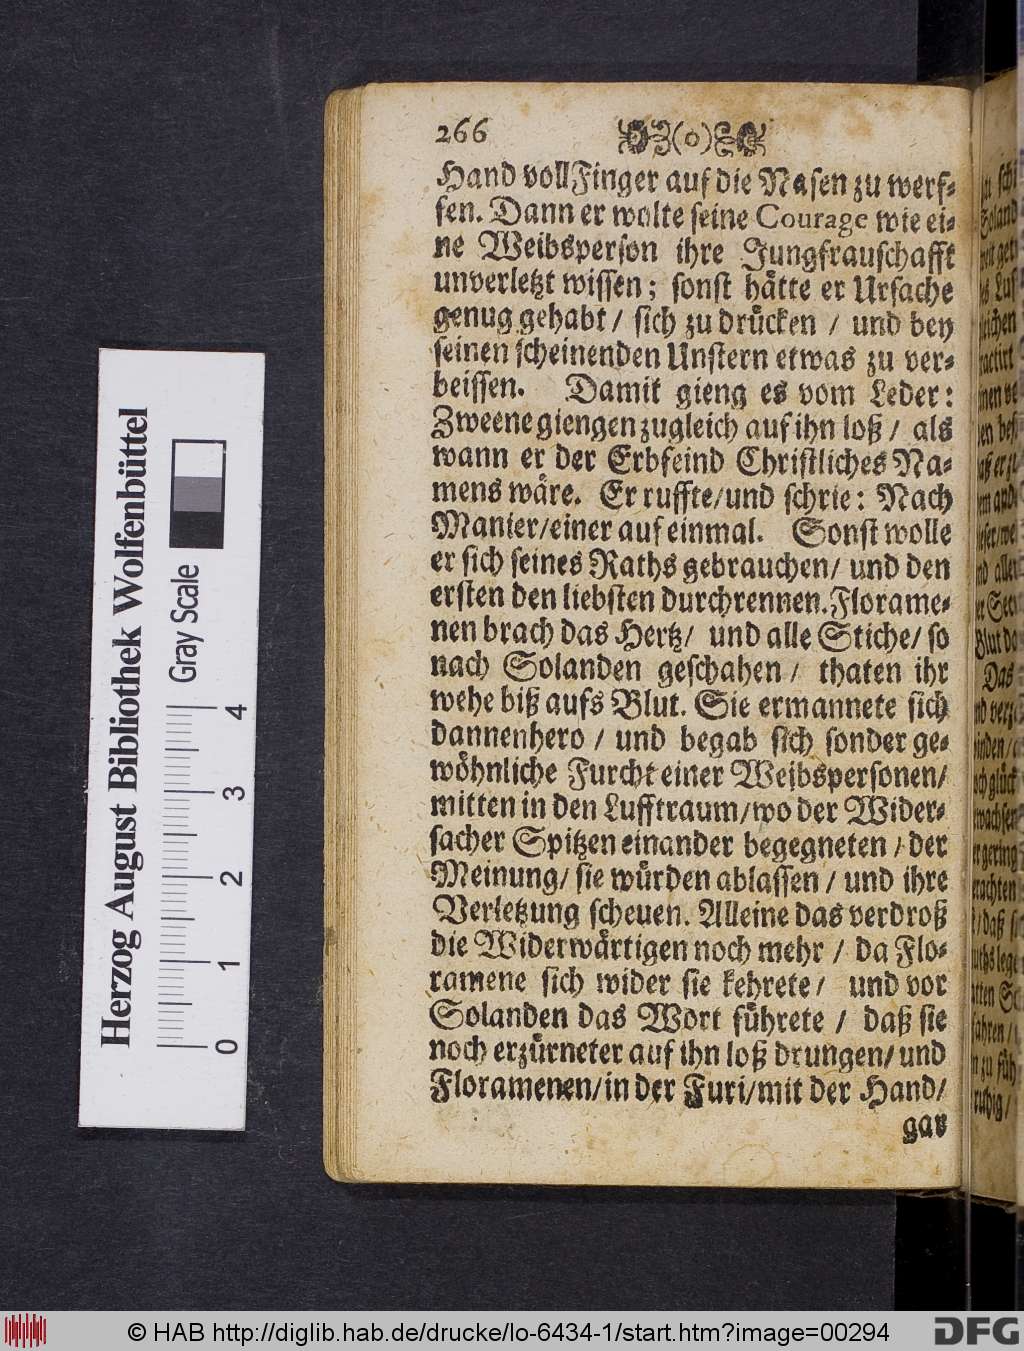 266 (o)
Hand voll Finger auf die Nasen zu werf-
fen. Dann er wolte seine Courage wie ei-
ne Weibsperson ihre Jungfrauschafft
unverletzt wissen; sonst hätte er Ursache
genug gehabt / sich zu drücken / und bey
seinen scheinenden Unstern etwas zu ver-
beissen. Damit gieng es vom Leder:
Zweene giengen zugleich auf ihn loß / als
wann er der Erbfeind Christliches Na-
mens wäre. Er ruffte/und schrie: Nach
Manier/einer auf einmal. Sonst wolle
er sich seines Raths gebrauchen/ und den
ersten den liebsten durchrennen. Florame-
nen brach das Hertz/ und alle Stiche/ so
nach Solanden geschahen / thaten ihr
wehe biß aufs Blut. Sie ermannete sich
dannenhero / und begab sich sonder ge-
wöhnliche Furcht einer Weibspersonen/
mitten in den Lufftraum/wo der Wider-
sacher Spitzen einander begegneten / der
Meinung/ sie würden ablassen / und ihre
Verletzung scheuen. Alleine das verdroß
die Widerwärtigen noch mehr / da Flo-
ramene sich wider sie kehrete / und vor
Solanden das Wort führete / daß sie
noch erzürneter auf ihn loß drungen/ und
Floramenen/in der Furi/mit der Hand/
gar
Herzog August Bibliothek Wolfenbüttel
Gray Scale
0 1 2 3 4
© HAB http://diglib.hab.de/drucke/lo-6434-1/start.htm?image=00294
DFG